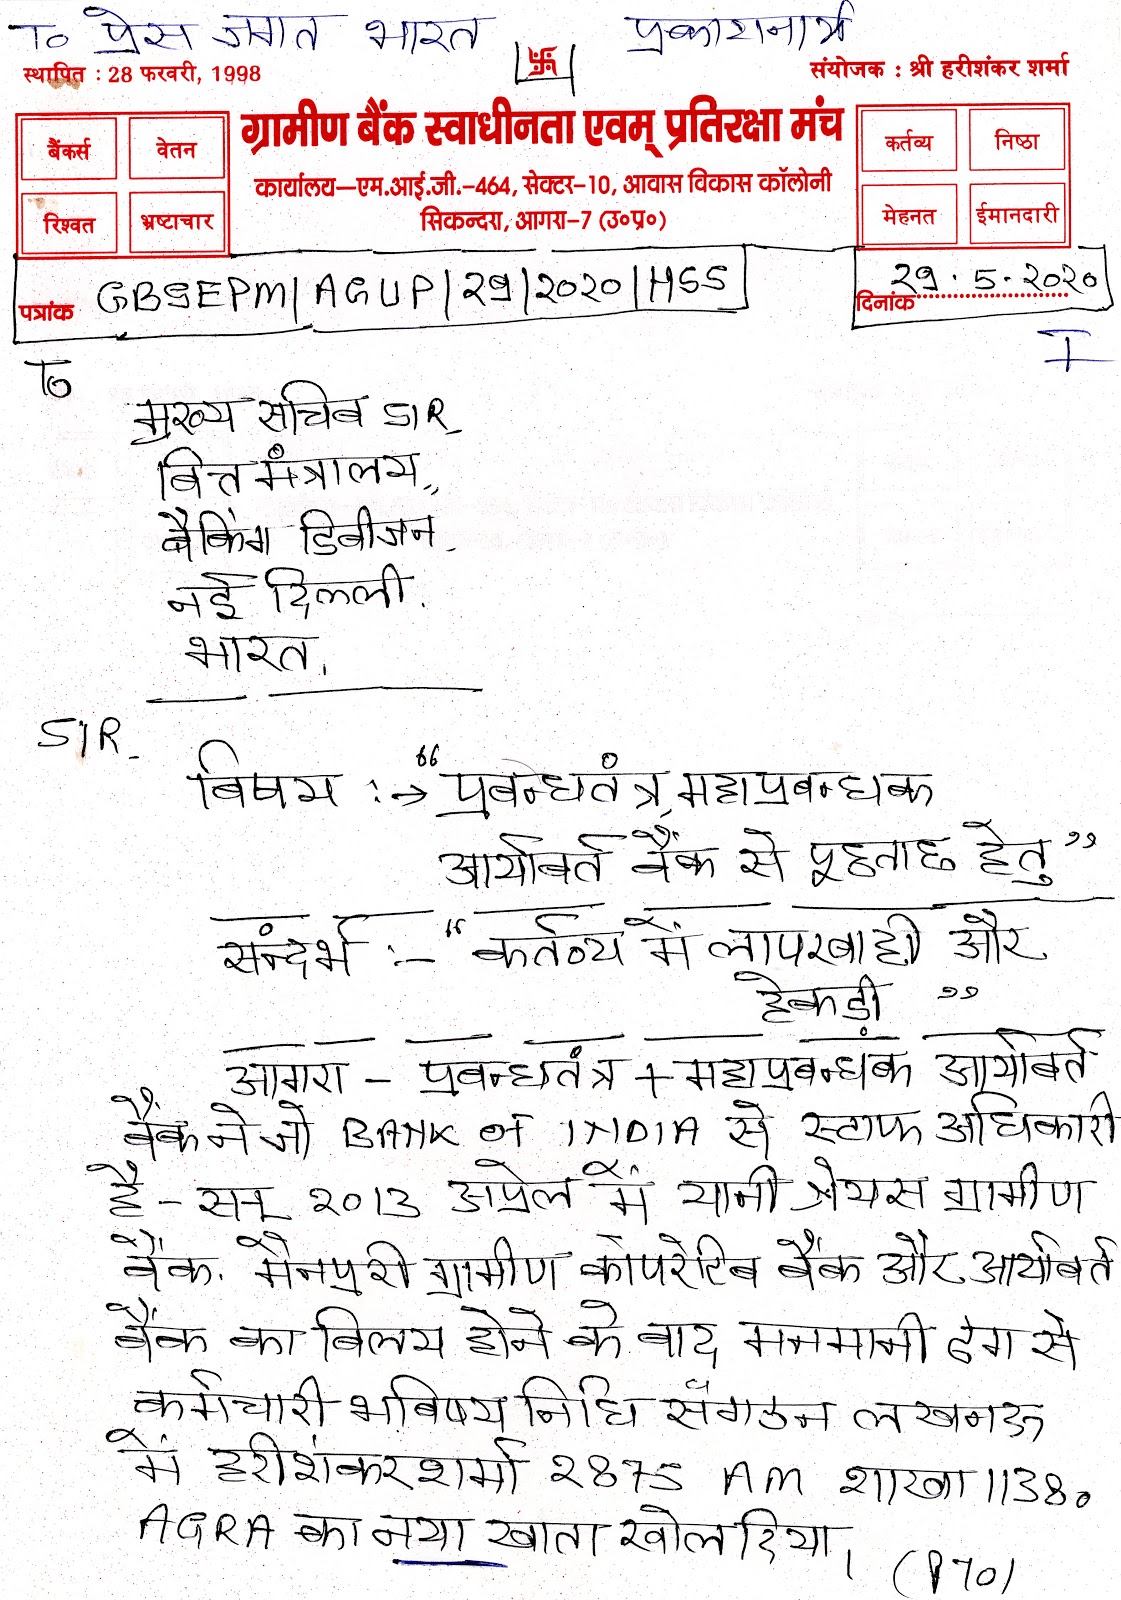 To प्रेस जगत भारत प्रकाशनार्थ
स्थापित : 28 फरवरी, 1998
संयोजक : श्री हरीशंकर शर्मा
बैंकर्स वेतन
रिश्वत भ्रष्टाचार
ग्रामीण बैंक स्वाधीनता एवम् प्रतिरक्षा मंच
कार्यालय–एम.आई.जी.–464, सेक्टर–10, आवास विकास कॉलोनी
सिकन्दरा, आगरा–7 (उ०प्र०)
कर्तव्य निष्ठा
मेहनत ईमानदारी
पत्रांक GBSEPM/AGUP/29/2020/HSS
दिनांक 29.5.2020
I
To
मुख्य सचिव SIR
वित्त मंत्रालय,,
बैंकिंग डिवीजन
नई दिल्ली.
भारत.
SIR
विषय :→ "प्रबन्धतंत्र, महाप्रबन्धक
आर्यावर्त बैंक से पूछताछ हेतु"
संन्दर्भ :- "कर्तव्य में लापरवाही और
हेकड़ी"
आगरा - प्रबन्धतंत्र + महाप्रबन्धंक आर्यावर्त
बैंक ने जो BANK of INDIA से स्टाफ अधिकारी
है - सन् 2013 अप्रेल में यानी श्रेयस ग्रामीण
बैंक. मैनपुरी ग्रामीण कोपरेटिव बैंक और आर्यावर्त
बैंक का विलय होने के बाद मनमानी ढंग से
कर्मचारी भविष्य निधि संगठन लखनऊ
में हरीशंकर शर्मा 2875 AM शाखा 1138०
AGRA का नया खाता खोल दिया।
(P70)